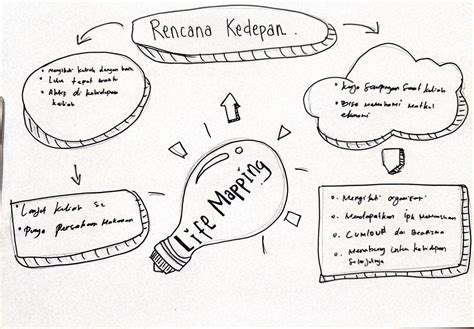 Rencana Kedepan.
• Mengikuti kuliah dengan baik
• Lulu tepat waktu
• Aktif di kehidupan
kuliah
• Kerja Sampingan Saat kuliah
• Bisa memahami matkul
ekonomi
Life Mapping
• Lanjut kuliah S2
• Punya perusahaan makanan
o. Mengikuti organisasi
o. Mendapatkan Ipk memuaskan
o. CUMLOUD dan Beasiswa
o. Menabung untuk kehidupan
Selanjutnya